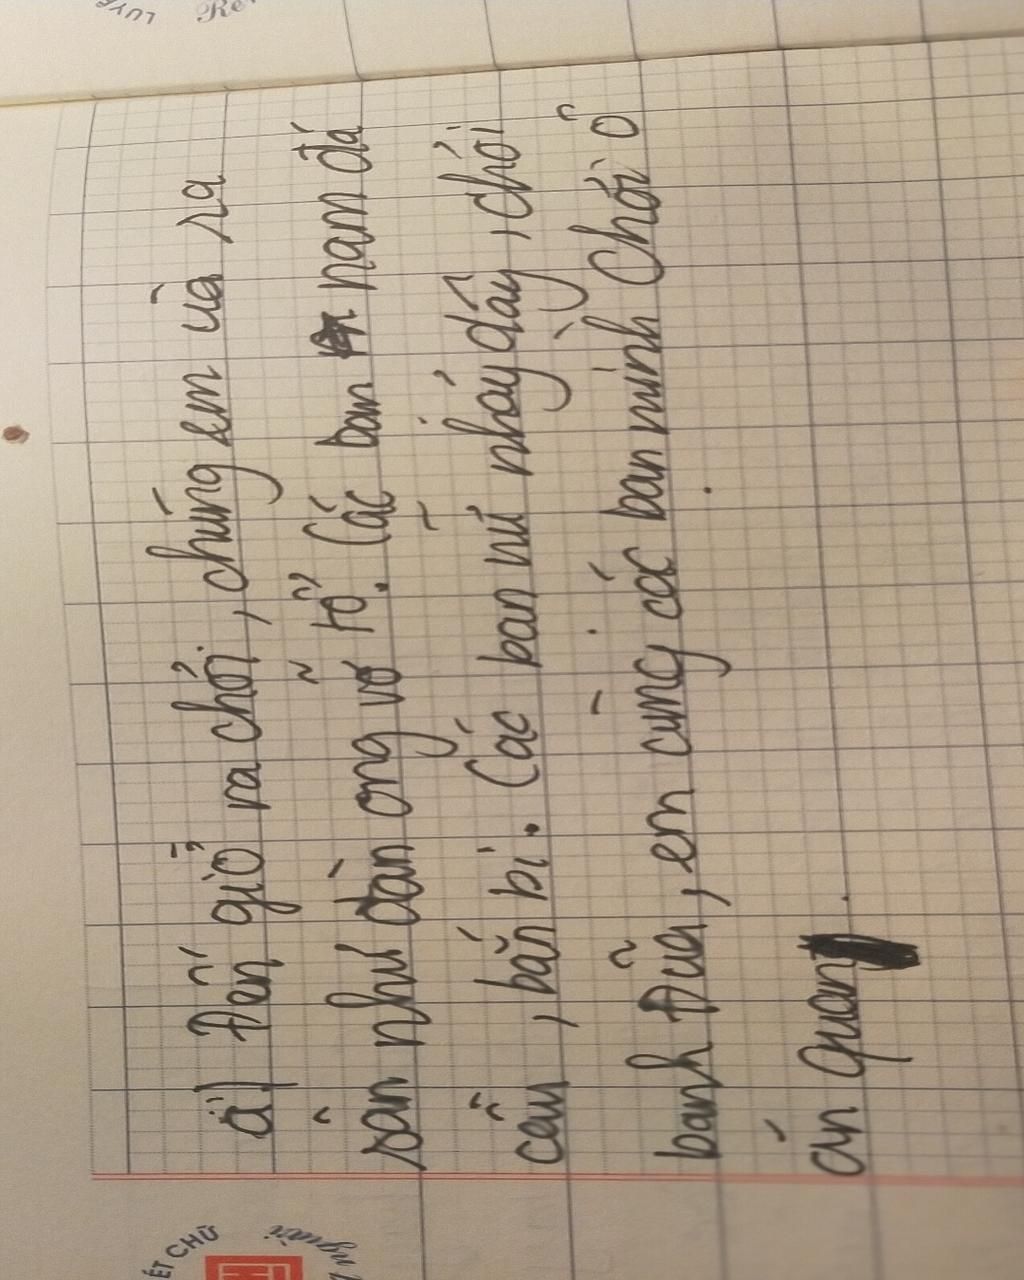 a) Đến giờ ra chơi, chúng em ùa ra
sân như đàn ong vỡ tổ. Các bạn nam đá
cầu, bắn bi. Các bạn nữ nhảy dây, chơi
banh đũa, em cùng các bạn mình chơi ô
ăn quan.
ẾT CHỮ
người
LUYỆ
Rè